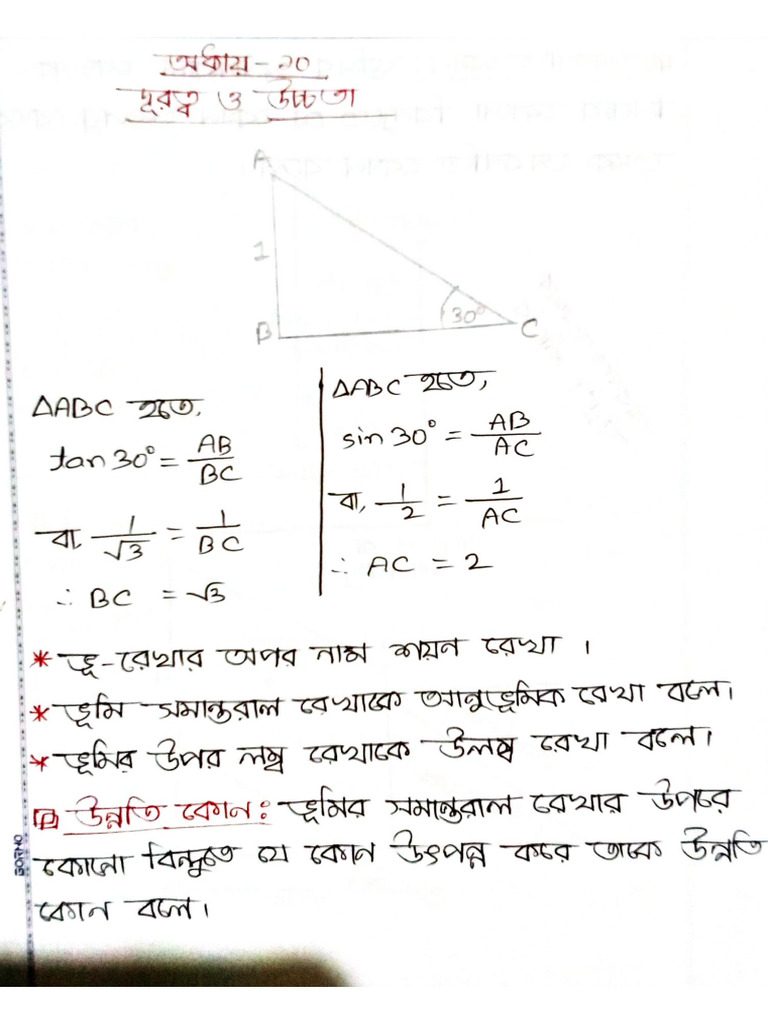 অধ্যায় - ১০
দূরত্ব ও উচ্চতা
A
1
30°
B
C
ΔABC হতে,
tan 30° = AB/BC
বা, 1/√3 = 1/BC
∴ BC = √3
ΔABC হতে,
sin 30° = AB/AC
বা, 1/2 = 1/AC
∴ AC = 2
* ভূ-রেখার অপর নাম শয়ন রেখা ।
* ভূমি সমান্তরাল রেখাকে আনুভূমিক রেখা বলে।
* ভূমির উপর লম্ব রেখাকে উলম্ব রেখা বলে।
উন্নতি কোন: ভূমির সমান্তরাল রেখার উপরে
কোনো বিন্দুতে যে কোন উৎপন্ন করে তাকে উন্নতি
কোন বলে।
BORNO